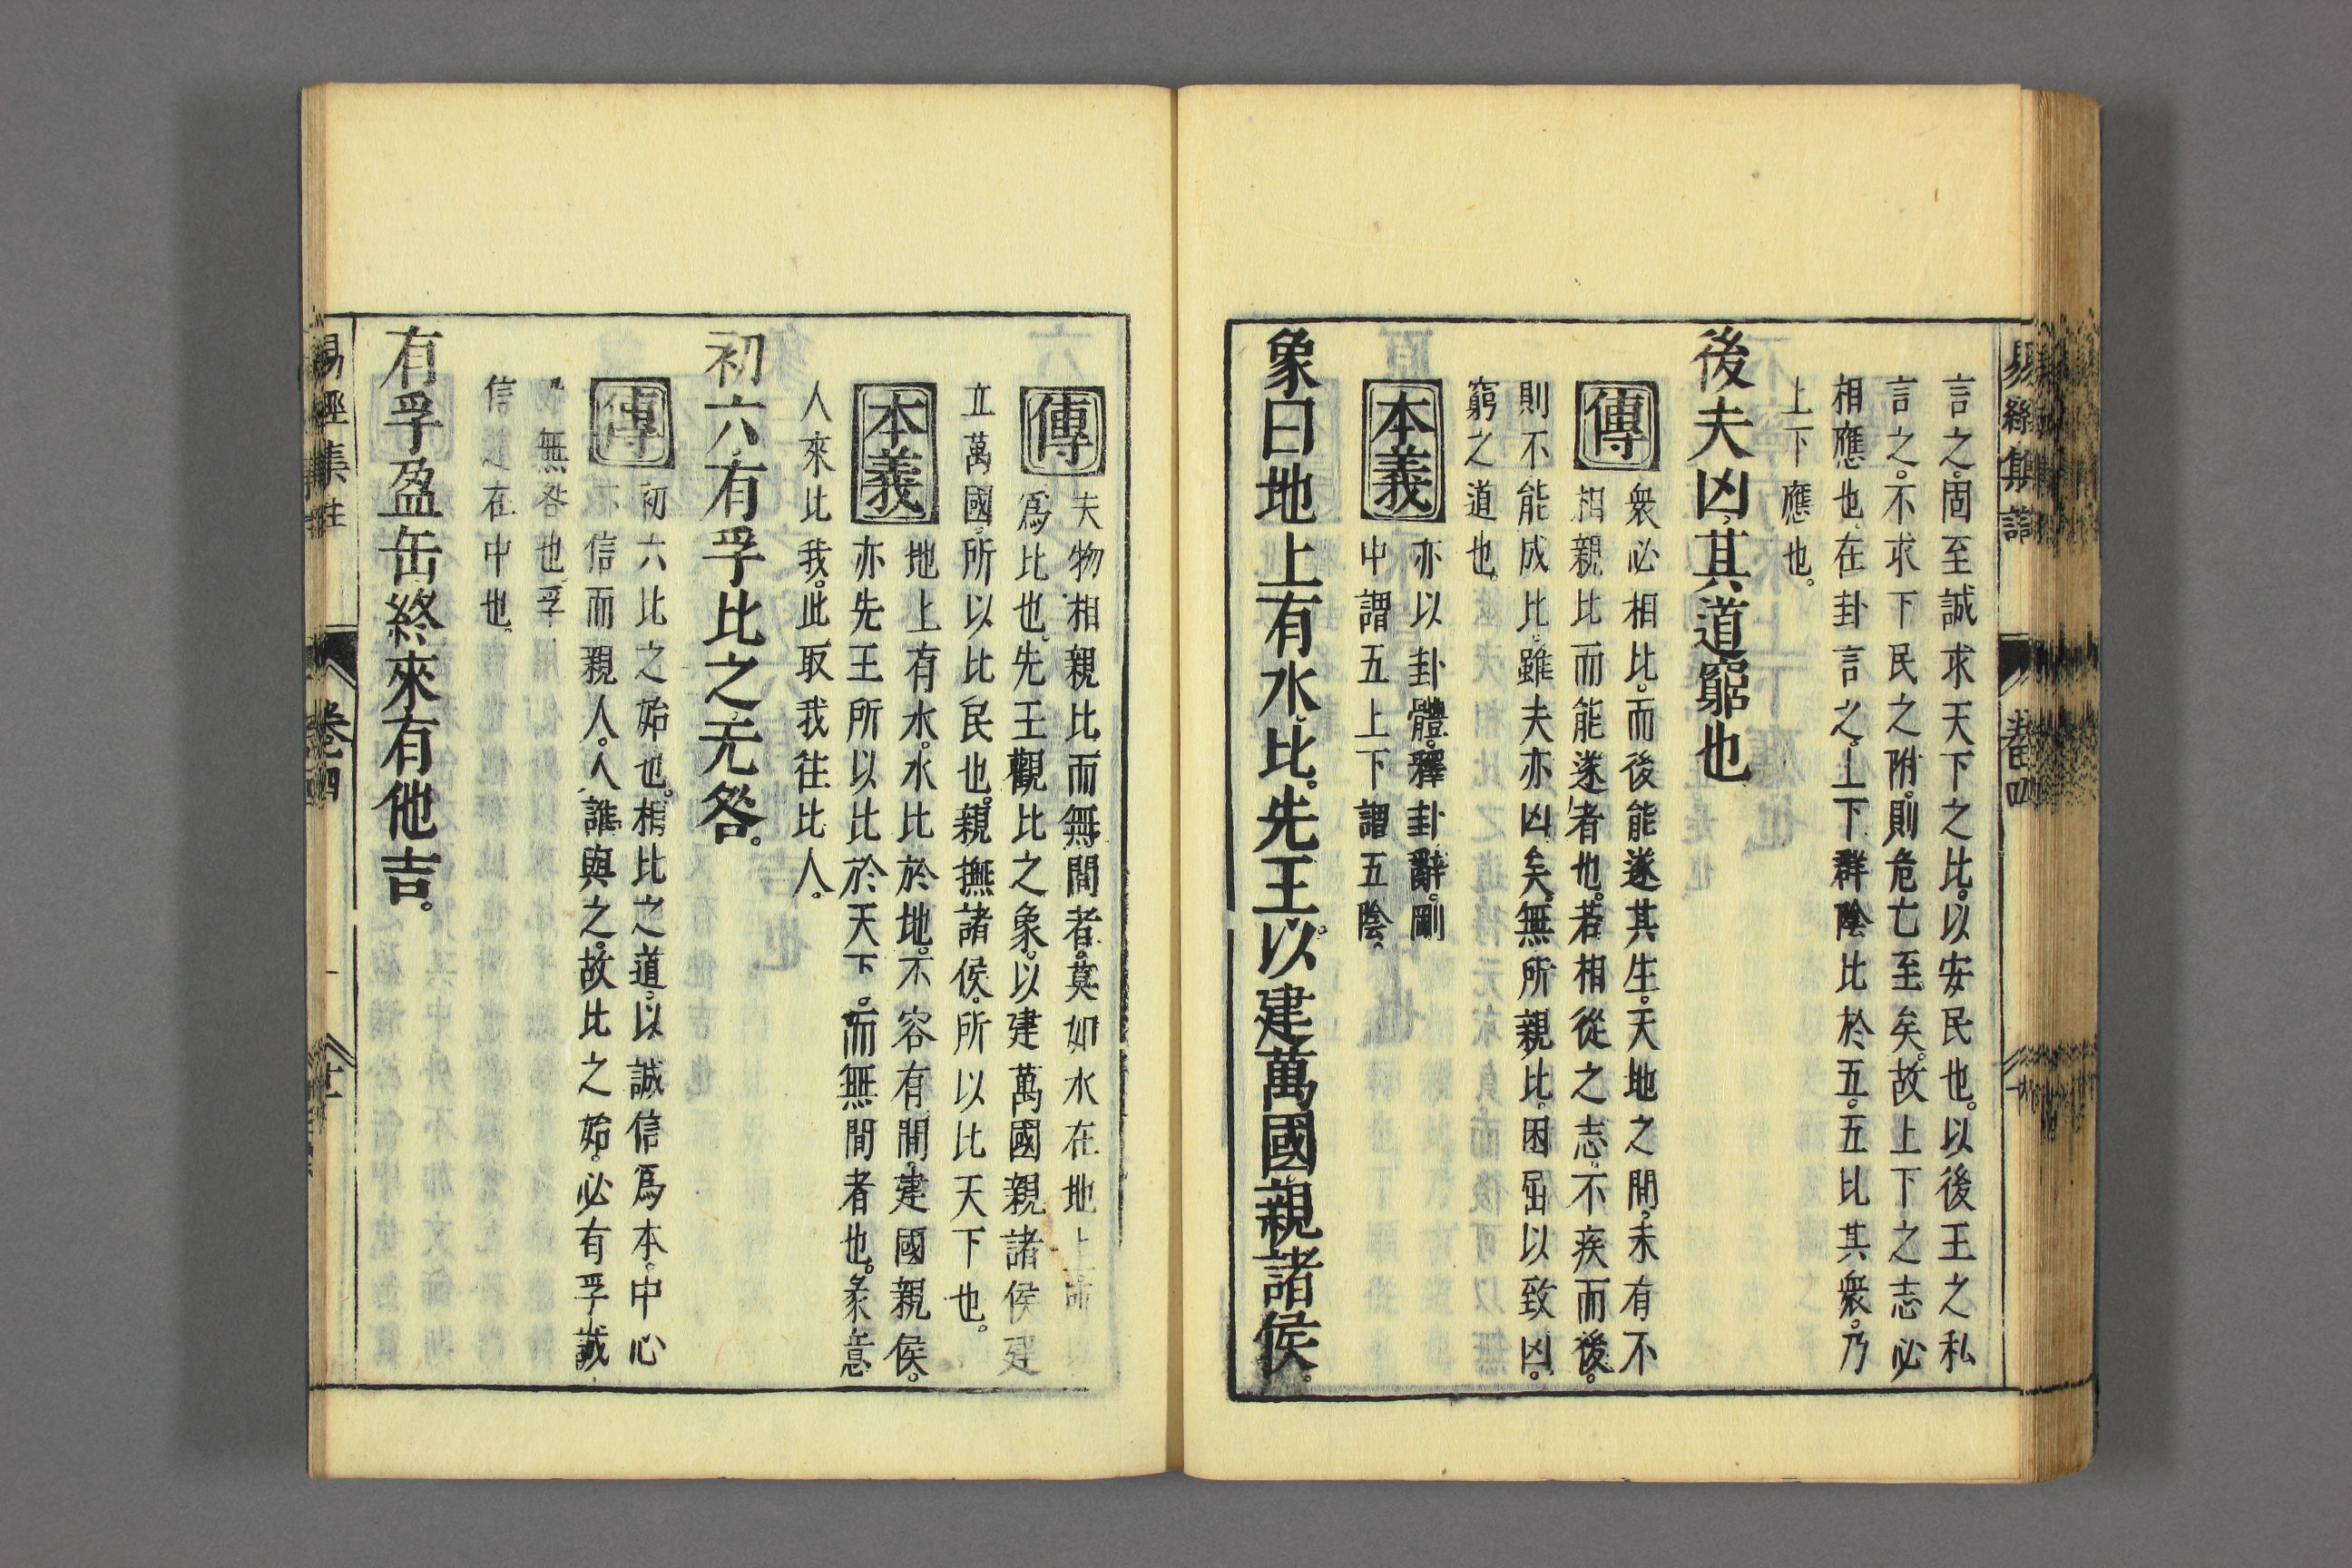 言之。固至誠求天下之比。以安民也。以後王之私
言之。不求下民之附。則危亡至矣。故上下之志必
相應也。在卦言之。上下群陰比於五。五比其衆。乃
上下應也。
後夫凶。其道窮也
傳 衆必相比。而後能遂其生。天地之間。未有不
相親比而能遂者也。若相從之志。不疾而後。
則不能成比。雖夫亦凶矣。無所親比。困屈以致凶。
窮之道也。
本義 亦以卦體。釋卦辭。剛
中謂五上下謂五陰。
象曰地上有水。比。先王以建萬國。親諸侯。
傳 夫物相親比而無間者。莫如水在地上
爲比也。先王觀比之象。以建萬國親諸侯建
立萬國。所以比民也。親撫諸侯。所以比天下也。
本義 地上有水。水比於地。不容有間。建國親侯。
亦先王所以比於天下。而無間者也。彖意
人來比我。此取我往比人。
初六。有孚比之。无咎。
傳 初六比之始也。相比之道。以誠信爲本。中心
不信而親人。人誰與之。故比之始。必有孚誠
乃無咎也孚
信之在中也。
有孚盈缶。終來有他吉。
易經集註 卷四